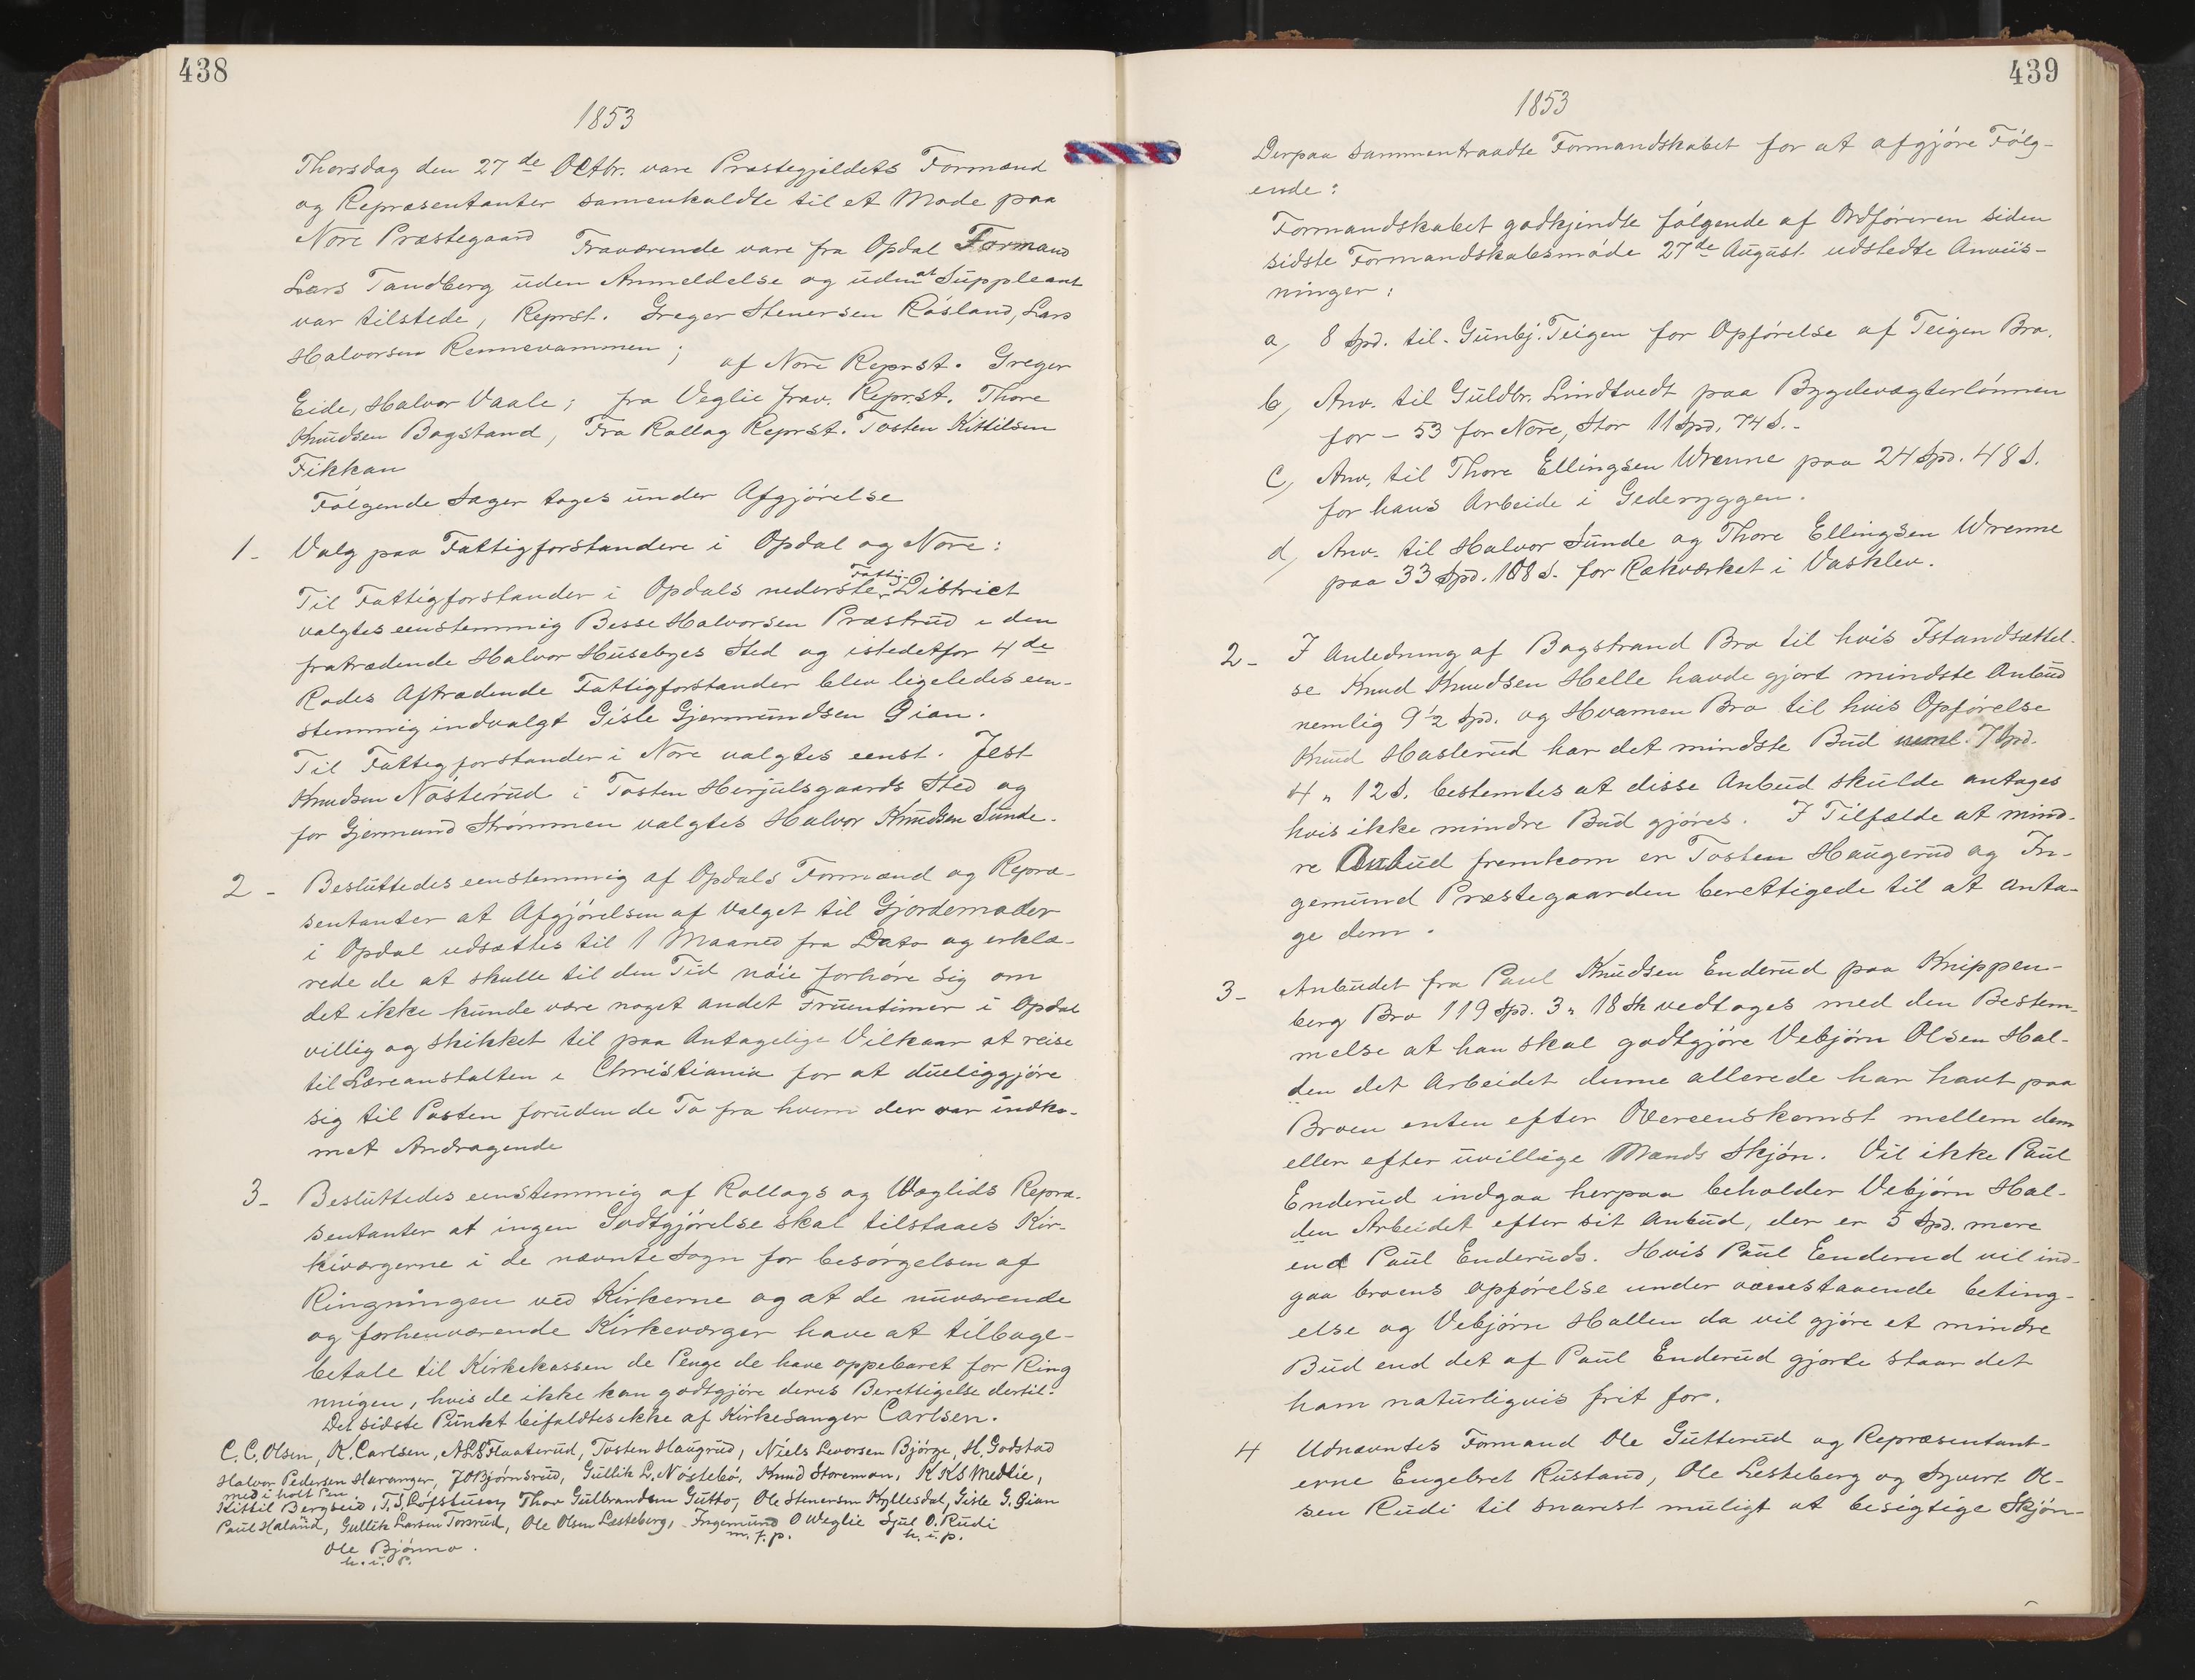 438
1853
Thorsdag den 27de Octbr. vare Præstegjeldets Formænd
og Repræsentanter samenkaldte til et Møde paa
Nore Præstegaard Fraværende vare fra Opdal Formand
Lars Tandberg uden Anmeldelse og uden at Suppleant
var tilstede, Reprst. Greger Stenersen Råsland, Lars
Halvorsen Rennevammen; af Nore Reprst. Greger
Eide, Halvor Vaale; fra Veglie frav. Reprst. Thore
Knudsen Bagstand, Fra Rollag Reprst. Tosten Kittilsen
Fikkan
Følgende Sager toges under Afgjörelse
1- Valg paa Fattigforstandere i Opdal og Nore:
Til Fattigforstander i Opdals nederste Fattig-District
valgtes eenstemmig Besse Halvorsen Præstrud i den
fratrædende Halvor Husebyes Sted og istedetfor 4de
Rodes Aftrædende Fattigforstander blev ligeledes een-
stemmig indvalgt Gisle Gjermundsen Gian.
Til Fattigforstander i Nore valgtes eenst. Jest
Knudsen Nösterud i Tosten Herjulsgaards Sted og
for Gjermund Strømmen valgtes Halvor Knudsen Sunde.
2- Besluttedes eenstemmig af Opdals Formænd og Repræ-
sentanter at Afgjörelsen af Valget til Gjordemoder
i Opdal udsættes til 1 Maaned fra Dato og erklæ-
rede de at skulle til den Tid nöie forhöre sig om
det ikke kunde være noget andet Fruentimer i Opdal
villig og skikket til paa Antagelige Vilkaar at reise
til Læreanstalten i Christiania for at dueliggjöre
sig til Posten foruden de To fra hvem der var indko-
met Andragende
3- Besluttedes eenstemmig af Rollags og Wæglids Repræ-
sentanter at ingen Godtgjörelse skal tilstaaes Kir-
keværgerne i de nævnte Sogn for besörgelsen af
Ringningen ved Kirkerne og at de nuværende
og forhenværende Kirkeværger have at tilbage-
betale til Kirkekassen de Penge de have oppebaret for Ring
nnigen, hvis de ikke kan godtgjöre deres Berettigelse dertil.
Det sidste Punkt bifaldtes ikke af Kirkesanger Carlsen.
C. C. Olsen, K. Carlsen, Flaaterud, Tosten Haugrud, Niels Levorsen Björge, H. Godstad
Halvor Pedersen Haranger, JOBjörnsrud, Gullik L. Nöstebö, Knud Storemon, K KS Medlie,
med i holt Pen
Kittil Bergseid, T. S. Löfstuen, Thor Gulbrandsen Gutto, Ole Stenersen Kyllesdal, Gisle G. Gian
Paul Haland, Gullik Larsen Torsrud, Ole Olsen Læsteberg, Ingemund O Weglie Syul O. Rudi
m. f. p. h. u. p.
Ole Bjönno.
h. u. P.
439
1853
Derpaa sammentraadte Formandskabet for at afgjöre Fölg-
ende:
Formandskabet godkjendte fölgende af Ordföreren siden
sidste Formandskabsmöde 27de August udstedte Anviis-
ninger:
a, 8 Spd. til Gunbj. Teigen for Opförelse af Teigen Bro.
b, Anv. til Guldbr. Lindtvedt paa Bygdevægterlönnen
for - 53 for Nore, Stor 11 Spd. 74 S.-
C, Anv. til Thore Ellingsen Wrenne paa 24 Spd. 48 S.
for hans Arbeide i Gederyggen.
d, Anv. til Halvor Sunde og Thore Ellingsen Wrenne
paa 33 Spd. 108 S. for Rækværket i Vasklev.
2- I Anledning af Bagstrand Bro til hvis Istandsættel-
se Knud Knudsen Helle havde gjort mindste Anbud
nemlig 9½ Spd. og Hvamen Bro til hvis Opförelse
Knud Haslerud har det mindste Bud neml. 7 Spd.
4 „ 12 S. bestemtes at disse Anbud skulde antages
hvis ikke mindre Bud gjöres. I Tilfælde at mind-
re Anbud fremkom er Tosten Haugerud og In-
gemund Præstegaarden berettigede til at Anta-
ge dem.
3- Anbudet fra Paul Knudsen Enderud paa Knippen-
berg Bro 119 Spd. 3 „ 18 Sk vedtoges med den Bestem-
melse at han skal godtgjöre Vebjörn Olsen Hal-
den det Arbeidet denne allerede har havt paa
Broen enten efter Overeenskomst mellem dem
eller efter uvillige Mænds Skjön. Vil ikke Paul
Enderud indgaa herpaa beholder Vebjörn Hal-
den Arbeidet efter sit Anbud, der er 5 Spd. mere
end Paul Enderuds. Hvis Paul Eenderud vil ind-
gaa broens opförelse under ovenstaaende beting-
else og Vebjörn Hallen da vil gjöre et mindre
Bud end det af Paul Enderud gjorte staar det
ham naturligvis frit for.
4 Udnævntes Formand Ole Gutterud og Repræsentant-
erne Engebret Rustand, Ole Lesteberg og Syvert Ol-
sen Rudi til snarest muligt at besigtige Skjön-